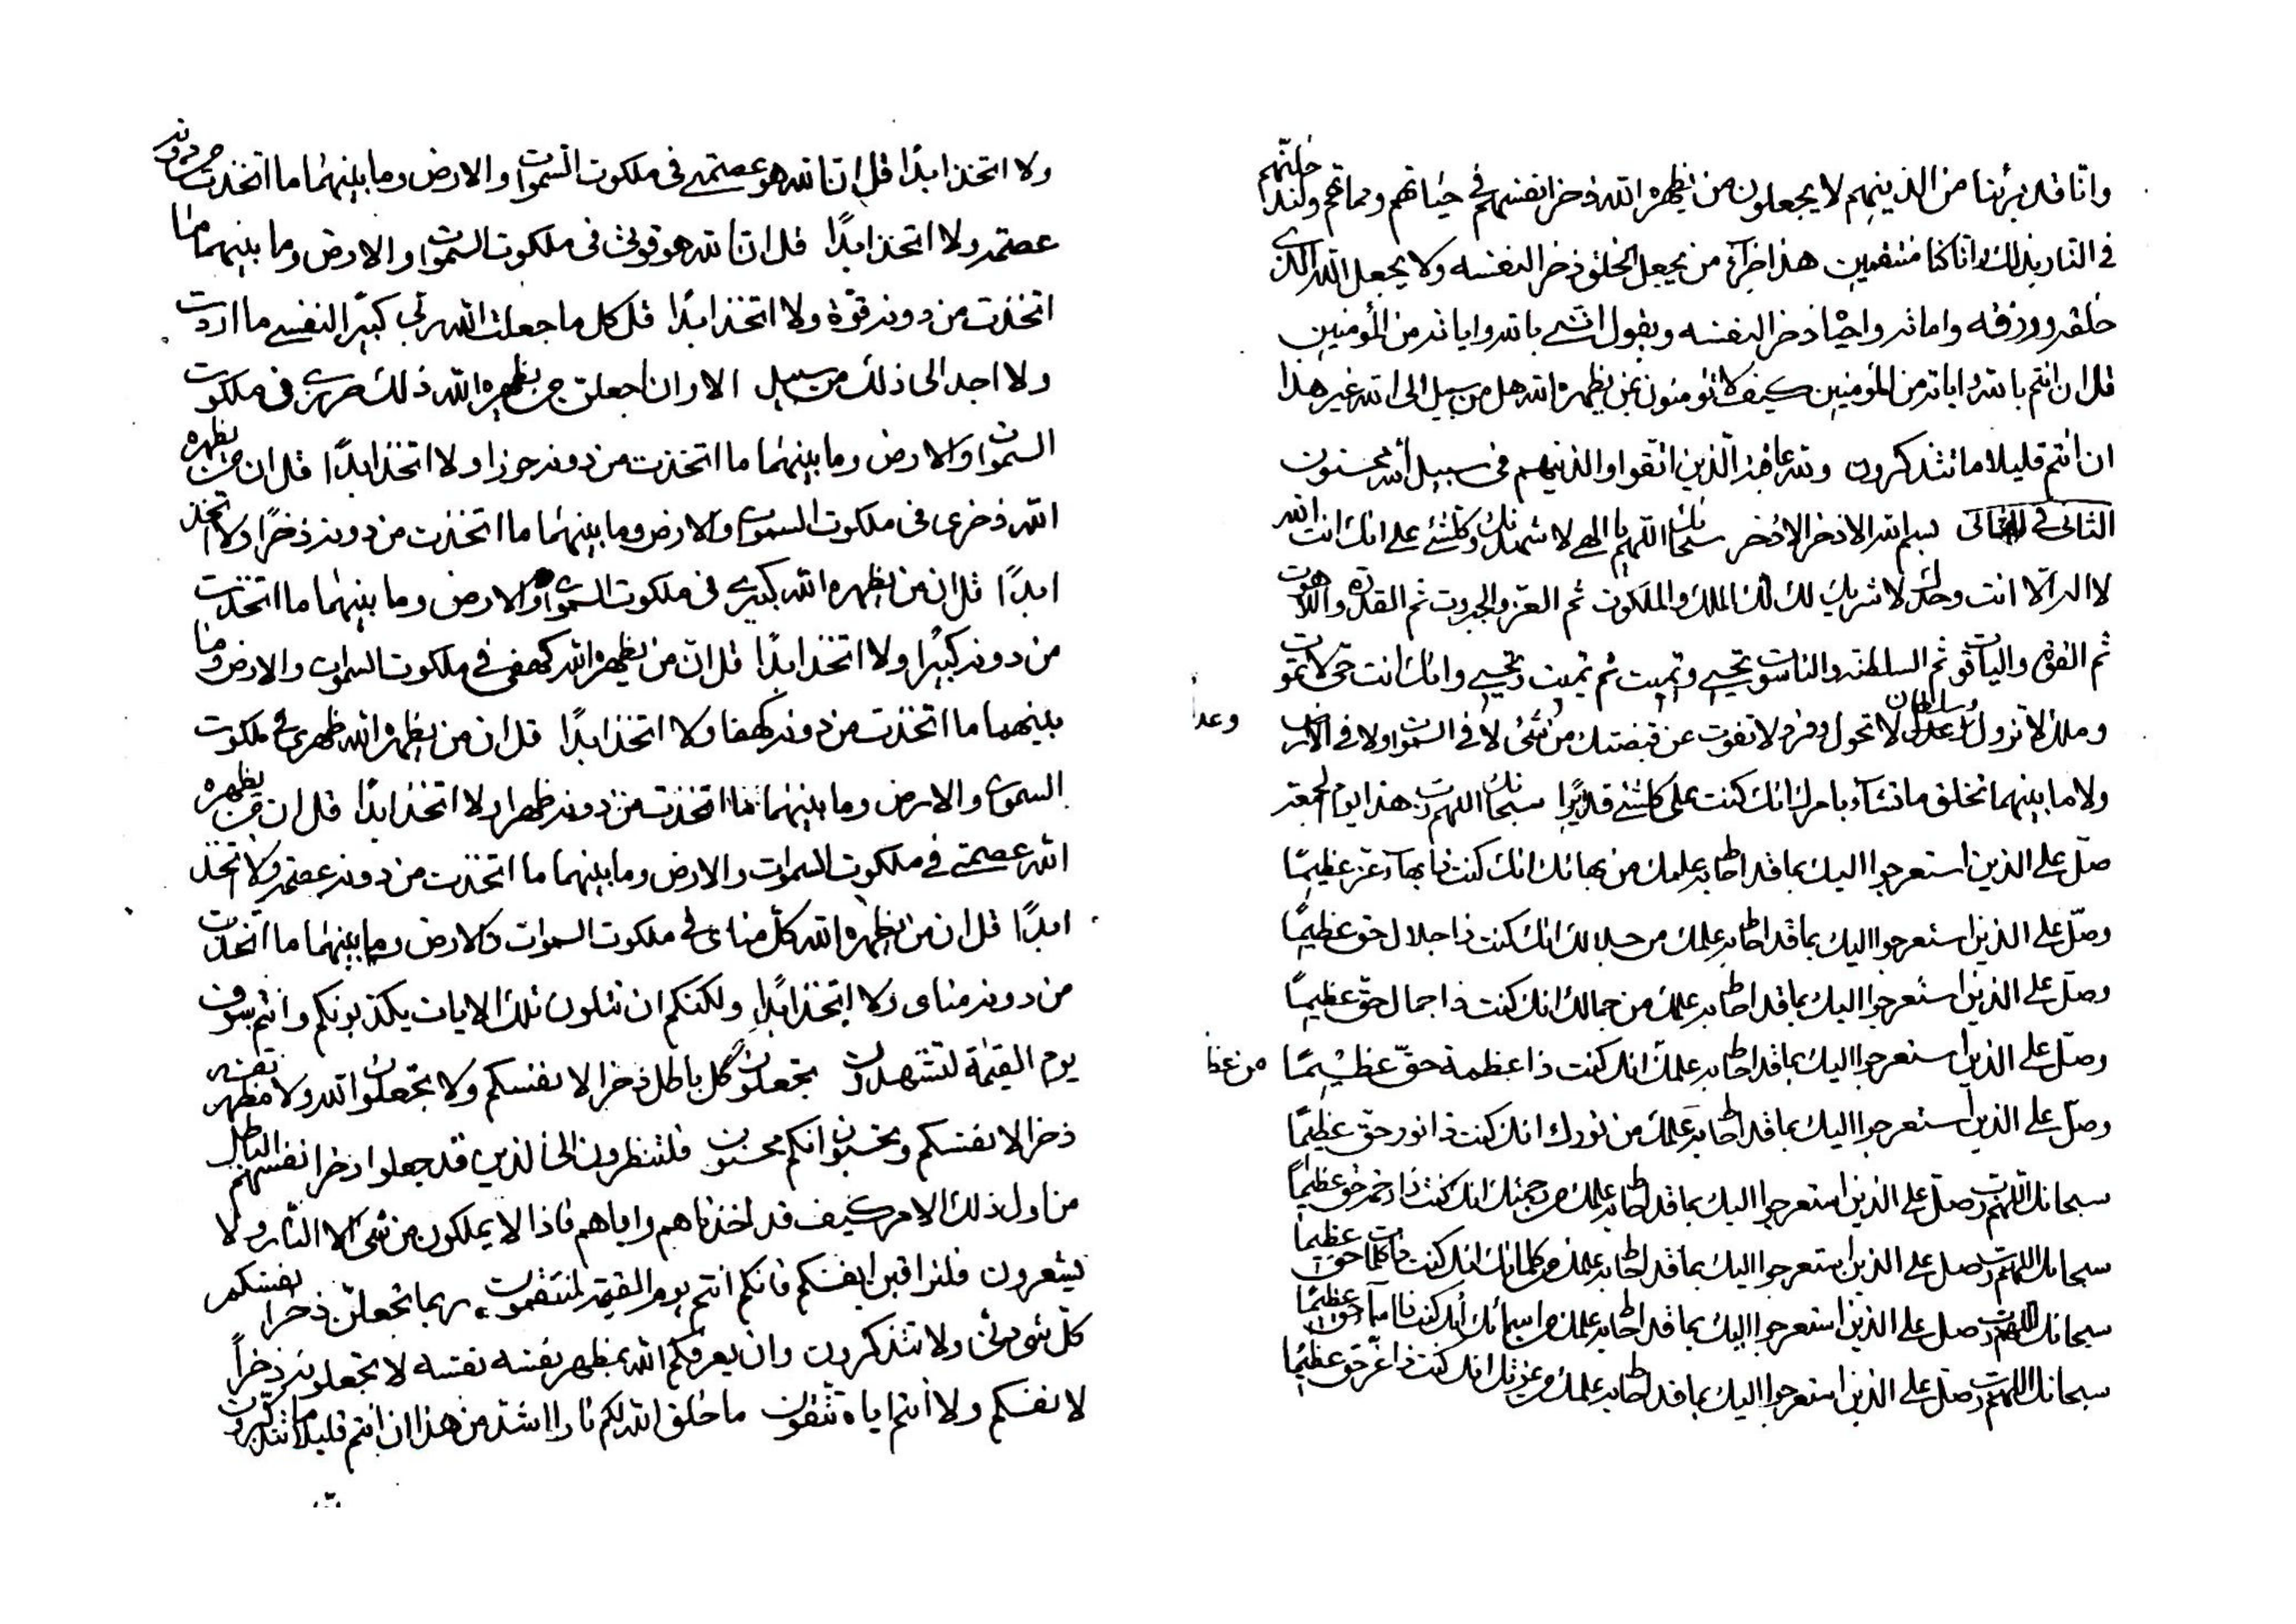 وانا قد برئنا من الذينهم لا يجعلون من يظهره الله ذخرا لنفسهم في حياتهم ومماتهم ولندخلنهم
في النار بذلك وانا كنا منتقمين هذا جزاء من يجعل الخلق ذخرا لنفسه ولا يجعل الله الذي
خلقه ورزقه واماته واحياه ذخرا لنفسه ويقول انني بالله واياته من المؤمنين
قل ان انتم بالله واياته من المؤمنين كيف لا تؤمنون بمن يظهره الله هل من سبيل الى الله غير هذا
ان انتم قليلا ما تتذكرون والله عاخذ الذين اتقوا والذينهم في سبيل الله محسنون
الثاني في الثاني بسم الله الاذخر الاذخر سبحانك اللهم يا الهي لاشهدنك وكلشئ على انك انت الله
لا اله الا انت وحدك لا شريك لك لك الملك والملكوت ثم العز والجبروت ثم القدرة واللاهوت
ثم القوة والياقوت ثم السلطنة والناسوت تحيي وتميت ثم تميت وتحيي وانك انت حي لا تموت
وملك لا تزول وعدل لا تجور وسلطان لا تحول وفرد لا تفوت عن قبضتك من شئ لا في السموات ولا في الارض
ولا ما بينهما تخلق ما تشاء بامرك انك كنت على كلشئ قديرا سبحانك اللهم رب هذا يوم الجمعة
صل على الذين استعرجوا اليك بما قد احاط به علمك من بهائك انك كنت ذا بهاء عز عظيما
وصل على الذين استعرجوا اليك بما قد احاط به علمك من جلالك انك كنت ذا جلال حق عظيما
وصل على الذين استعرجوا اليك بما قد احاط به علمك من جمالك انك كنت ذا جمال حق عظيما
وصل على الذين استعرجوا اليك بما قد احاط به علمك انك كنت ذا عظمة حق عظيما
وصل على الذين استعرجوا اليك بما قد احاط به علمك من نورك انك كنت ذا نور حق عظيما
سبحانك اللهم رب صل على الذين استعرجوا اليك بما قد احاط به علمك من رحمتك انك كنت ذا رحمة حق عظيما
سبحانك اللهم رب صل على الذين استعرجوا اليك بما قد احاط به علمك من كلماتك انك كنت ذا كلمات حق عظيما
سبحانك اللهم رب صل على الذين استعرجوا اليك بما قد احاط به علمك من اسمائك انك كنت ذا اسماء حق عظيما
سبحانك اللهم رب صل على الذين استعرجوا اليك بما قد احاط به علمك من عزتك انك كنت ذا عز حق عظيما
ولا اتخذ ابدا قل ان الله هو عصمتي في ملكوت السموات والارض وما بينهما ما اتخذت من دونه
عصمة ولا اتخذ ابدا قل ان الله هو قوتي في ملكوت السموات والارض وما بينهما ما
اتخذت من دونه قوة ولا اتخذ ابدا قل كل ما جعلت الله ربي كبيرا لنفسي ما اردت
ولا اجد الى ذلك من سبيل الا وان اجعلن من يظهره الله ذلك حرزي في ملكوت
السموات والارض وما بينهما ما اتخذت من دونه حرزا ولا اتخذ ابدا قل ان من يظهره
الله ذخري في ملكوت السموات والارض وما بينهما ما اتخذت من دونه ذخرا ولا اتخذ
ابدا قل ان من يظهره الله كبيري في ملكوت السموات والارض وما بينهما ما اتخذت
من دونه كبيرا ولا اتخذ ابدا قل ان من يظهره الله كهفي في ملكوت السموات والارض وما
بينهما ما اتخذت من دونه كهفا ولا اتخذ ابدا قل ان من يظهره الله ظهري في ملكوت
السموات والارض وما بينهما ما اتخذت من دونه ظهرا ولا اتخذ ابدا قل ان من يظهره
الله عصمتي في ملكوت السموات والارض وما بينهما ما اتخذت من دونه عصمة ولا اتخذ
ابدا قل ان من يظهره الله كل مناي في ملكوت السموات والارض وما بينهما ما اتخذت
من دونه مناي ولا اتخذ ابدا ولكنكم ان تتلون تلك الايات يكذبونكم وانتم سوف
يوم القيمة لتشهدون تجعلون كل باطل ذخرا لانفسكم ولا تجعلون الله ولا مظهر نفسه
ذخرا لانفسكم وتحسبون انكم محسنون فلتنظرون الى الذين قد جعلوا ذخر انفسهم الباطل
من اول ذلك الامر كيف قد اخذناهم واياهم فاذا لا يملكون من شئ الا النار ولا
يشعرون فلتراقبن انفسكم فانكم انتم يوم القيمة لتتقمون ربما تجعلن ذخر انفسكم
كل شئ ولا تتذكرون وان يعرفكم الله مظهر نفسه نفسه لا تجعلونه ذخرا
لانفسكم ولا انتم اياه تتقون ما خلق الله لكم نارا اشد من هذا ان انتم قليلا ما تتذكرون